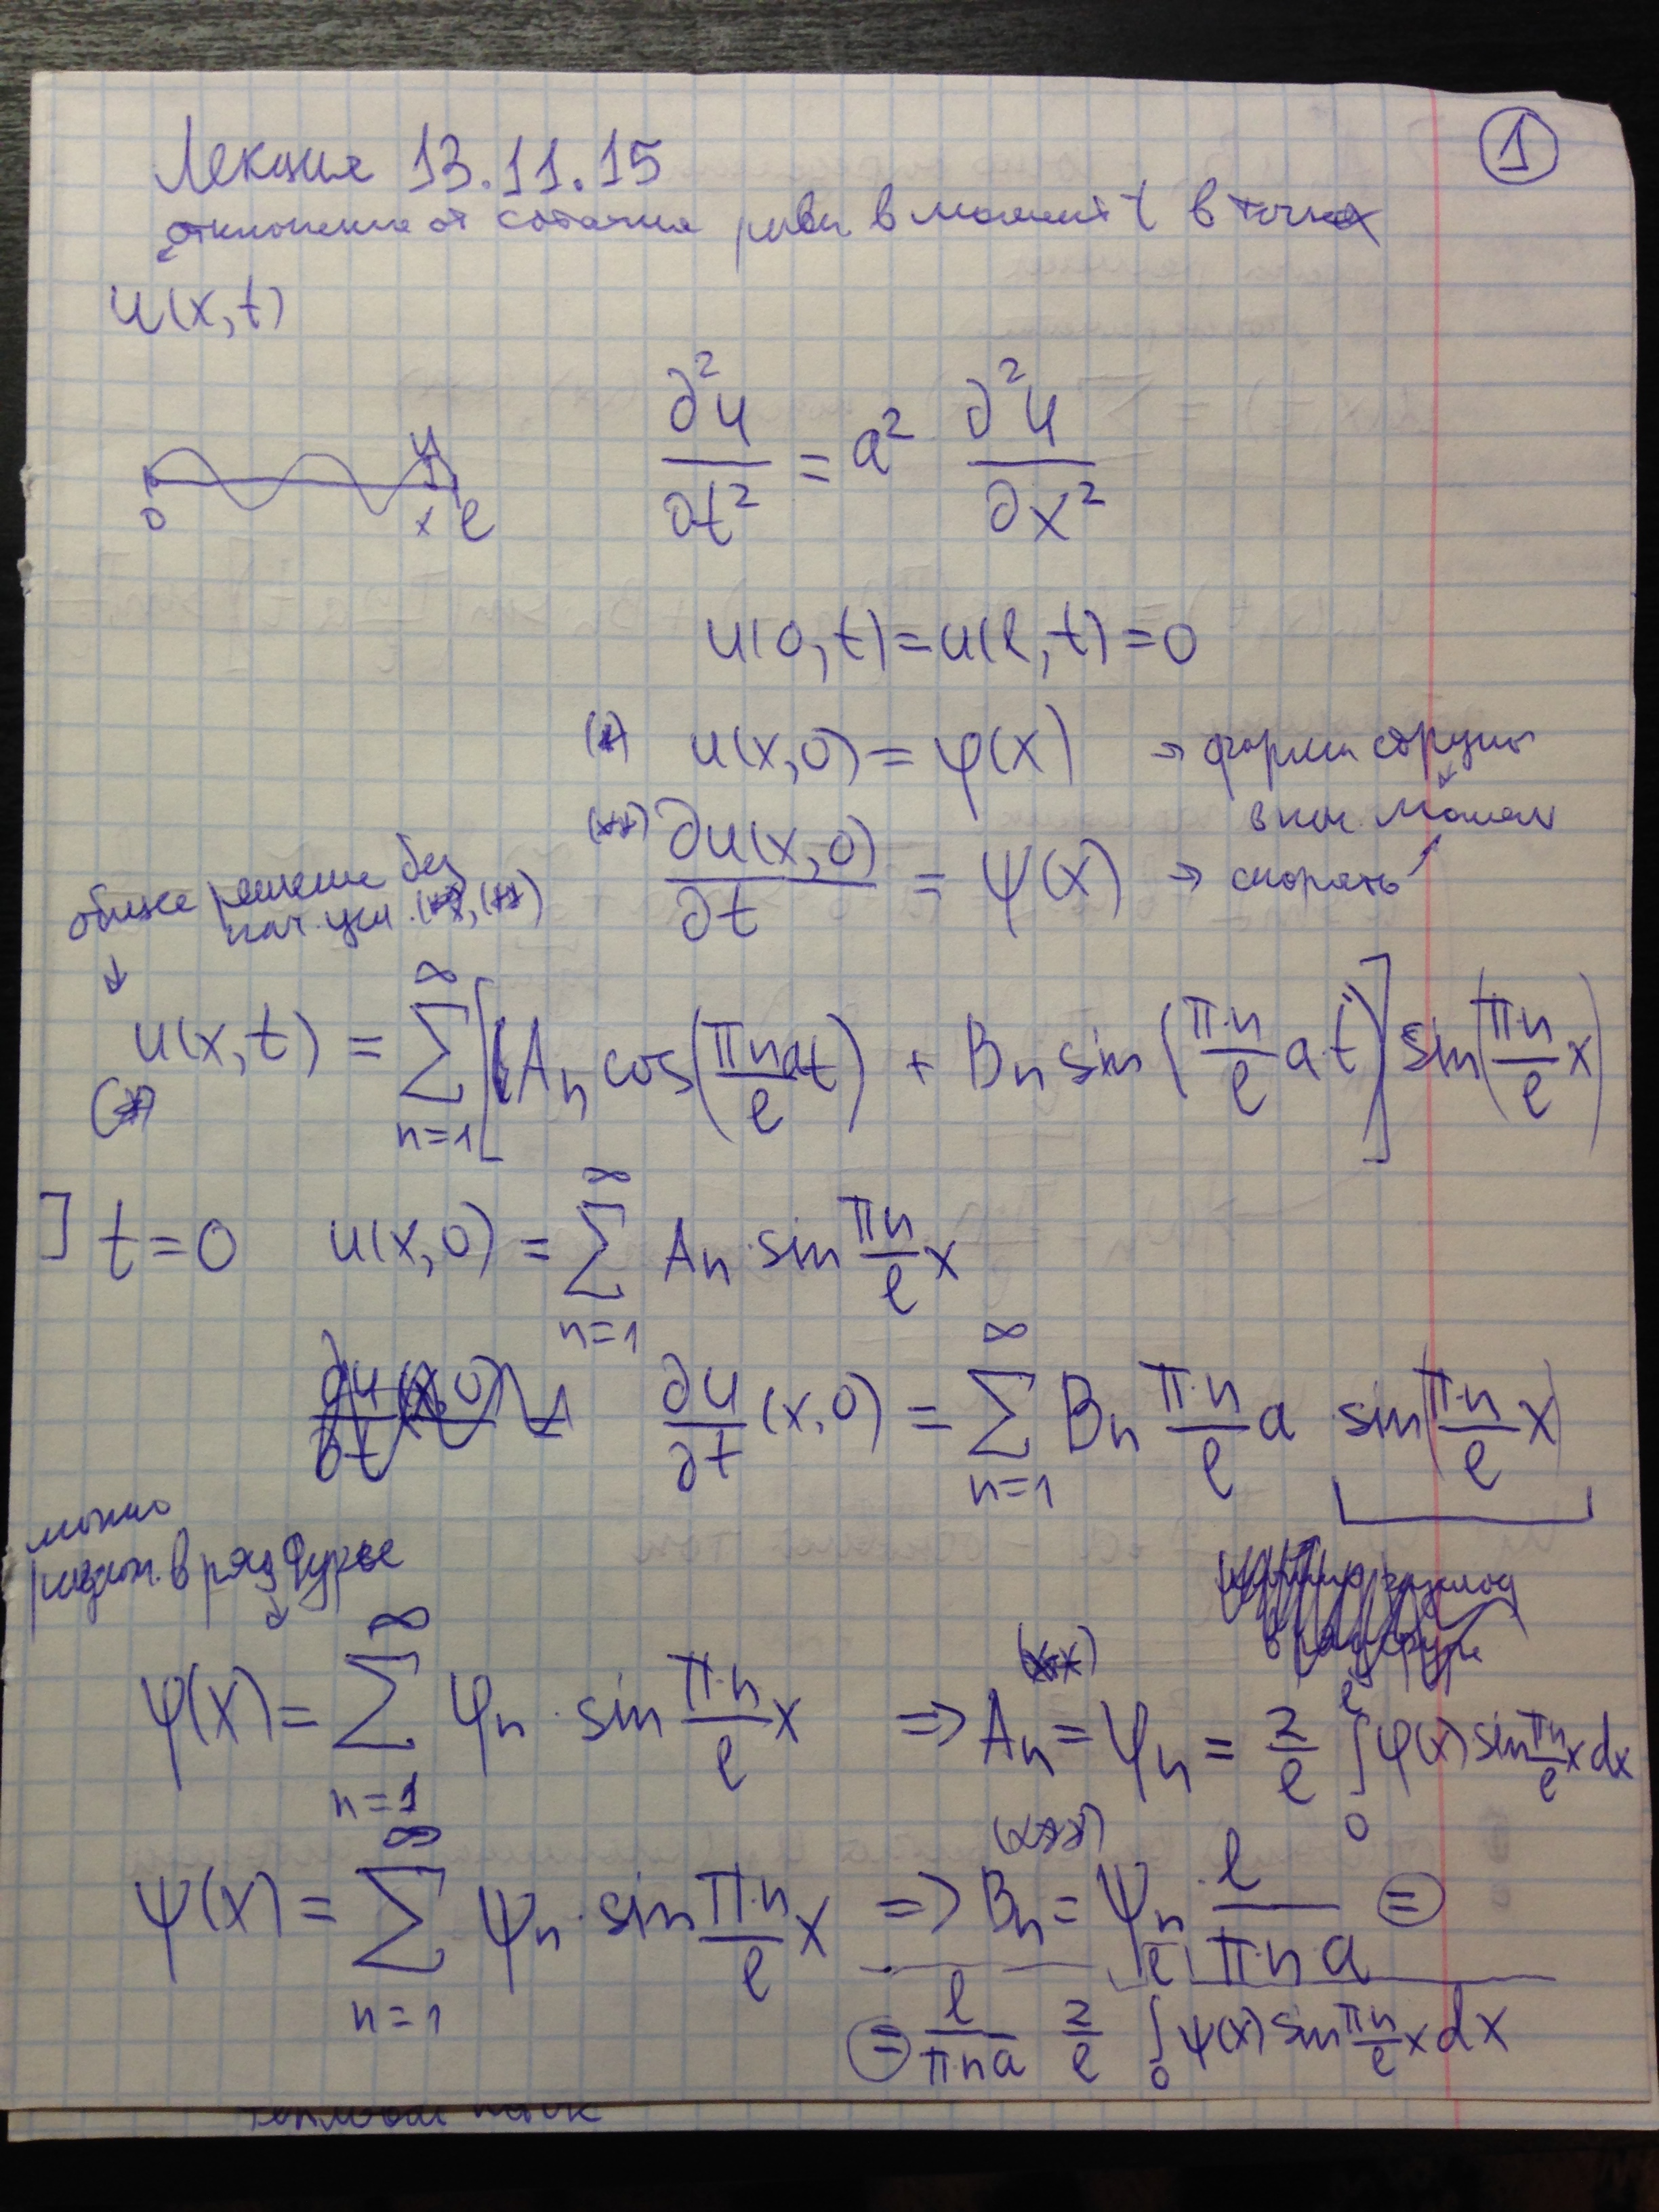 1
Лекция 13.11.15
отклонение от состояния равн в момент t в точке x
u(x,t)
∂²u/∂t² = a² ∂²u/∂x²
u
0 x l
u(0,t)=u(l,t)=0
(*) u(x,0) = φ(x) → форма струны
в нач. момент
(**) ∂u(x,0)/∂t = ψ(x) → скорость
общее решение без
нач. усл. (*), (**)
u(x,t) = ∑_{n=1}^{∞} [A_n cos(πn/l at) + B_n sin(π·n/l a·t)] sin(π·n/l x)
(*)
] t=0 u(x,0) = ∑_{n=1}^{∞} A_n·sin πn/l x
∂u/∂t (x,0) = ∑_{n=1}^{∞} B_n π·n/l a sin(π·n/l x)
можно
разлож. в ряд Фурье
φ(x) = ∑_{n=1}^{∞} φ_n · sin π·n/l x ⇒ A_n = φ_n = 2/l ∫_0^l φ(x) sin πn/l x dx
(**)
(***)
ψ(x) = ∑_{n=1}^{∞} ψ_n · sin π·n/l x ⇒ B_n = ψ_n · l/π·n·a =
= l/π·n·a 2/l ∫_0^l ψ(x) sin πn/l x dx